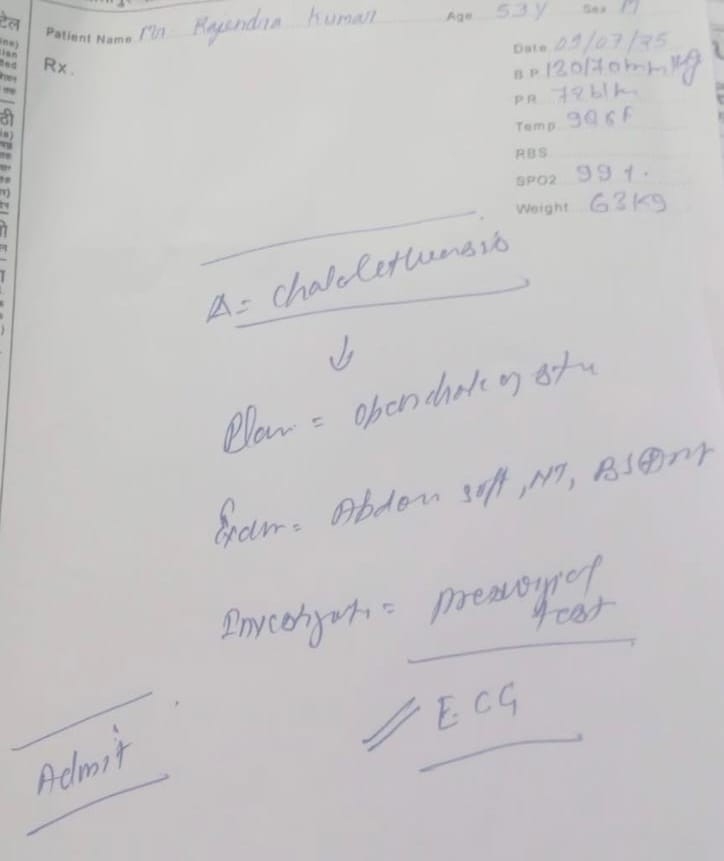 Patient Name Mr Rajendra Kumar Age 53Y Sex M
Date 09/07/25
Rx.
B P 120/70mmHg
PR 78b/m
Temp 98.6F
RBS
SPO2 99%.
Weight 63Kg
A= Cholelethiensis
Plan = Open chole cystu
Exam= Abdom soft, NT, BS⊕nt
Investigati = presurgical
test
// E.C.G
Admit